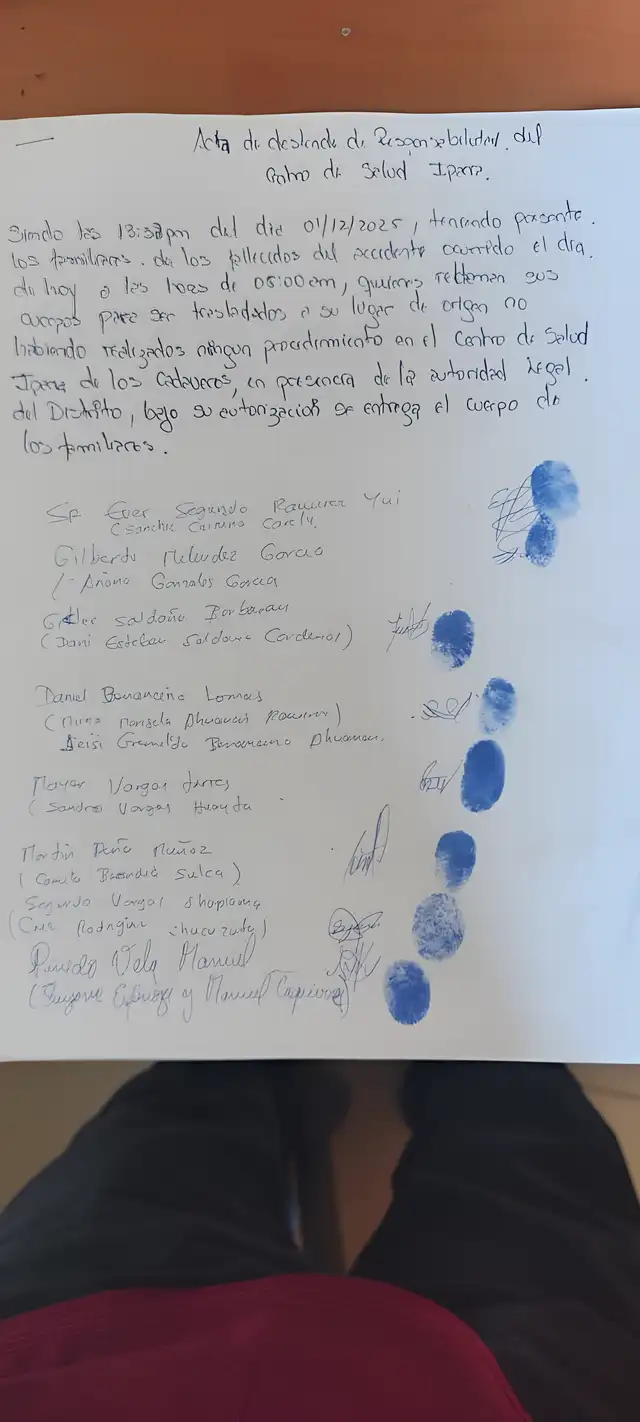 Acta de deslinde de Responsabilidad del
Centro de Salud Iparia.
Siendo las 13:38pm del dia 01/12/2025, teniendo presente.
los familiares. de los fallecidos del accidente ocurrido el dia.
de hoy a las horas de 05:00am, quienes retoman sus
cuerpos para ser trasladados a su lugar de origen no
habiendo realizados ningun procedimiento en el Centro de Salud
Iparia de los Cadaveres, en presencia de la autoridad legal.
del Distrito, bajo su autorización se entrega el cuerpo de
los familiares.
Sr Ever Segundo Ramirez Yui
Gilberto Melendez Garcia
Gonzales Garcia
Saldaña Barbaran
(Dani Esteban Saldaña Cardenas)
Daniel Lomas
(Marisela Dhuanan Ramirez)
Dhuanan.
Vargas
(Sandro Vargas
Martin Peña Muñoz
(Sulca)
Segundo Vargas Shapiama
(Cruz Rodriguez
Pinedo Vela Manuel
y Manuel